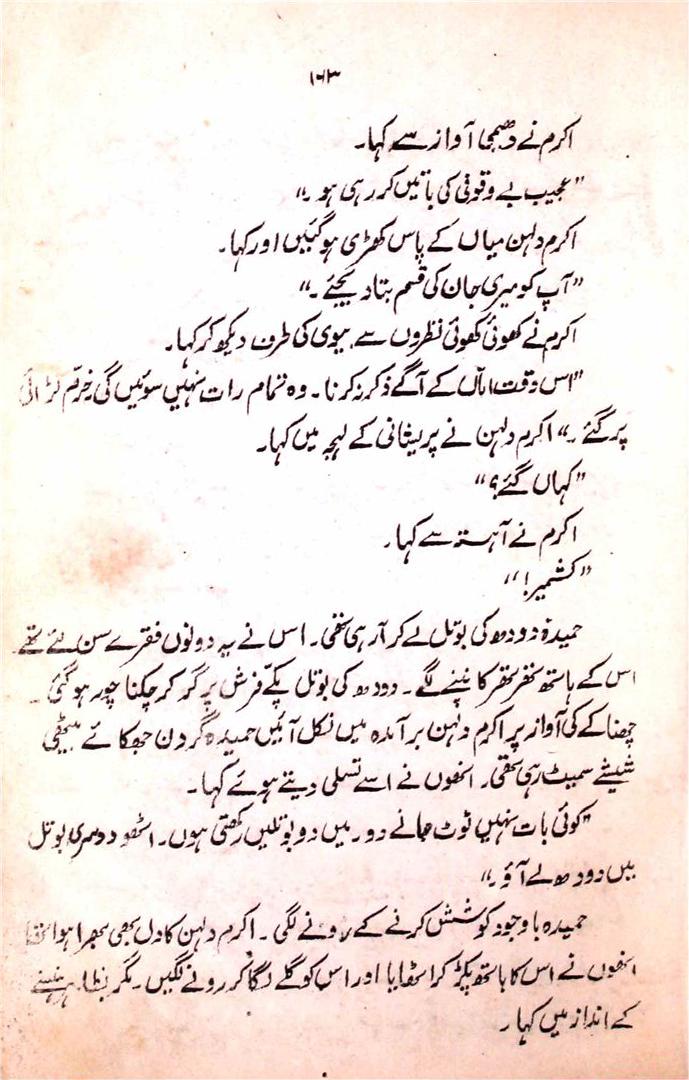 ۱۶۳
اکرم نے دھیمی آواز سے کہا۔
”عجیب بے وقوفی کی باتیں کر رہی ہو۔“
اکرم دلہن میاں کے پاس کھڑی ہوگئیں اور کہا۔
”آپ کو میری جان کی قسم بتا دیجئے۔“
اکرم نے کھوئی کھوئی نظروں سے بیوی کی طرف دیکھ کر کہا۔
”اس وقت اماں کے آگے ذکر نہ کرنا۔ وہ تمام رات نہیں سوئیں گی خرم لڑائی
پر گئے۔“ اکرم دلہن نے پریشانی کے لہجہ میں کہا۔
”کہاں گئے؟“
اکرم نے آہستہ سے کہا۔
”کشمیر!“
حمیدہ دودھ کی بوتل لے کر آرہی تھی۔ اس نے یہ دونوں فقرے سن لئے تھے
اس کے ہاتھ تھر تھر کانپنے لگے۔ دودھ کی بوتل پکّے فرش پر گر کر چکنا چور ہوگئی۔
چھناکے کی آواز پر اکرم دلہن برآمدہ میں نکل آئیں حمیدہ گردن جھکائے بیٹھی
شیشے سمیٹ رہی تھی۔ انھوں نے اسے تسلی دیتے ہوئے کہا۔
”کوئی بات نہیں ٹوٹ جانے دو۔ میں دو بوتلیں رکھتی ہوں۔ اٹھو دوسری بوتل
میں دودھ لے آؤ۔“
حمیدہ باوجود کوشش کرنے کے رونے لگی۔ اکرم دلہن کا دل بھی بھرا ہوا تھا
انھوں نے اس کا ہاتھ پکڑ کر اٹھایا اور اس کو گلے لگا کر رونے لگیں۔ مگر بظاہر ہنسنے
کے انداز میں کہا۔